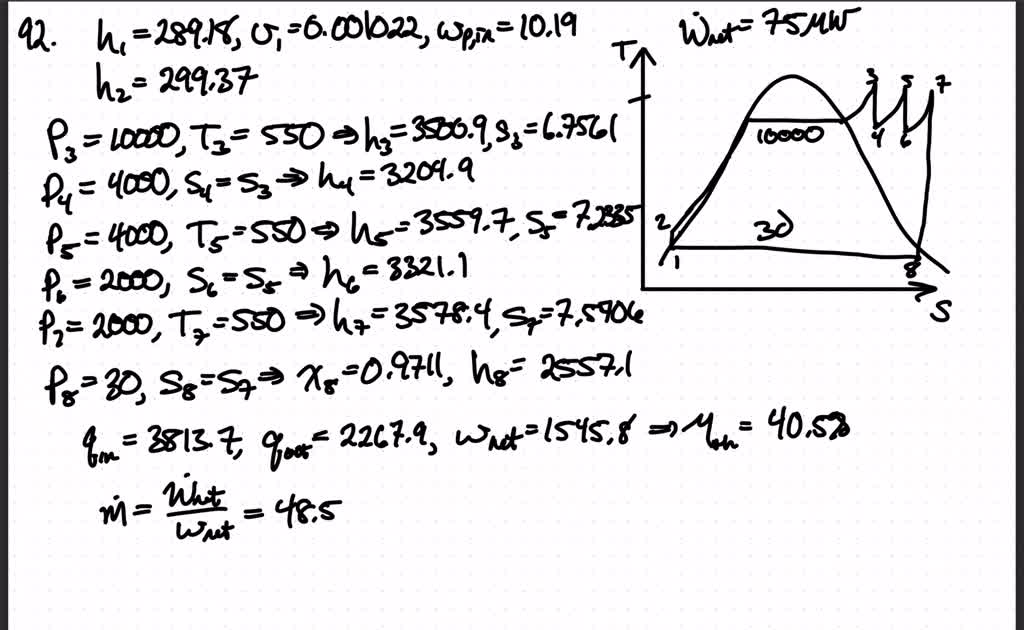 92. h₁ = 289.18, υ₁ = 0.001022, w_p,in = 10.19
Ẇnet = 75MW
h₂ = 299.37
P₃ = 10000, T₃ = 550 ⇒ h₃ = 3500.9, s₃ = 6.7561
P₄ = 4000, S₄ = S₃ ⇒ h₄ = 3204.9
P₅ = 4000, T₅ = 550 ⇒ h₅ = 3559.7, S₅ = 7.2335
P₆ = 2000, S₆ = S₅ ⇒ h₆ = 3321.1
P₇ = 2000, T₇ = 550 ⇒ h₇ = 3578.4, S₇ = 7.5706
P₈ = 30, S₈ = S₇ ⇒ x₈ = 0.9711, h₈ = 2557.1
q_in = 3813.7, q_out = 2267.9, w_net = 1545.8 ⇒ η_th = 40.5%
ṁ = Ẇnet / w_net = 48.5
T
3 5 7
10000 4 6
2 30
1 8
S